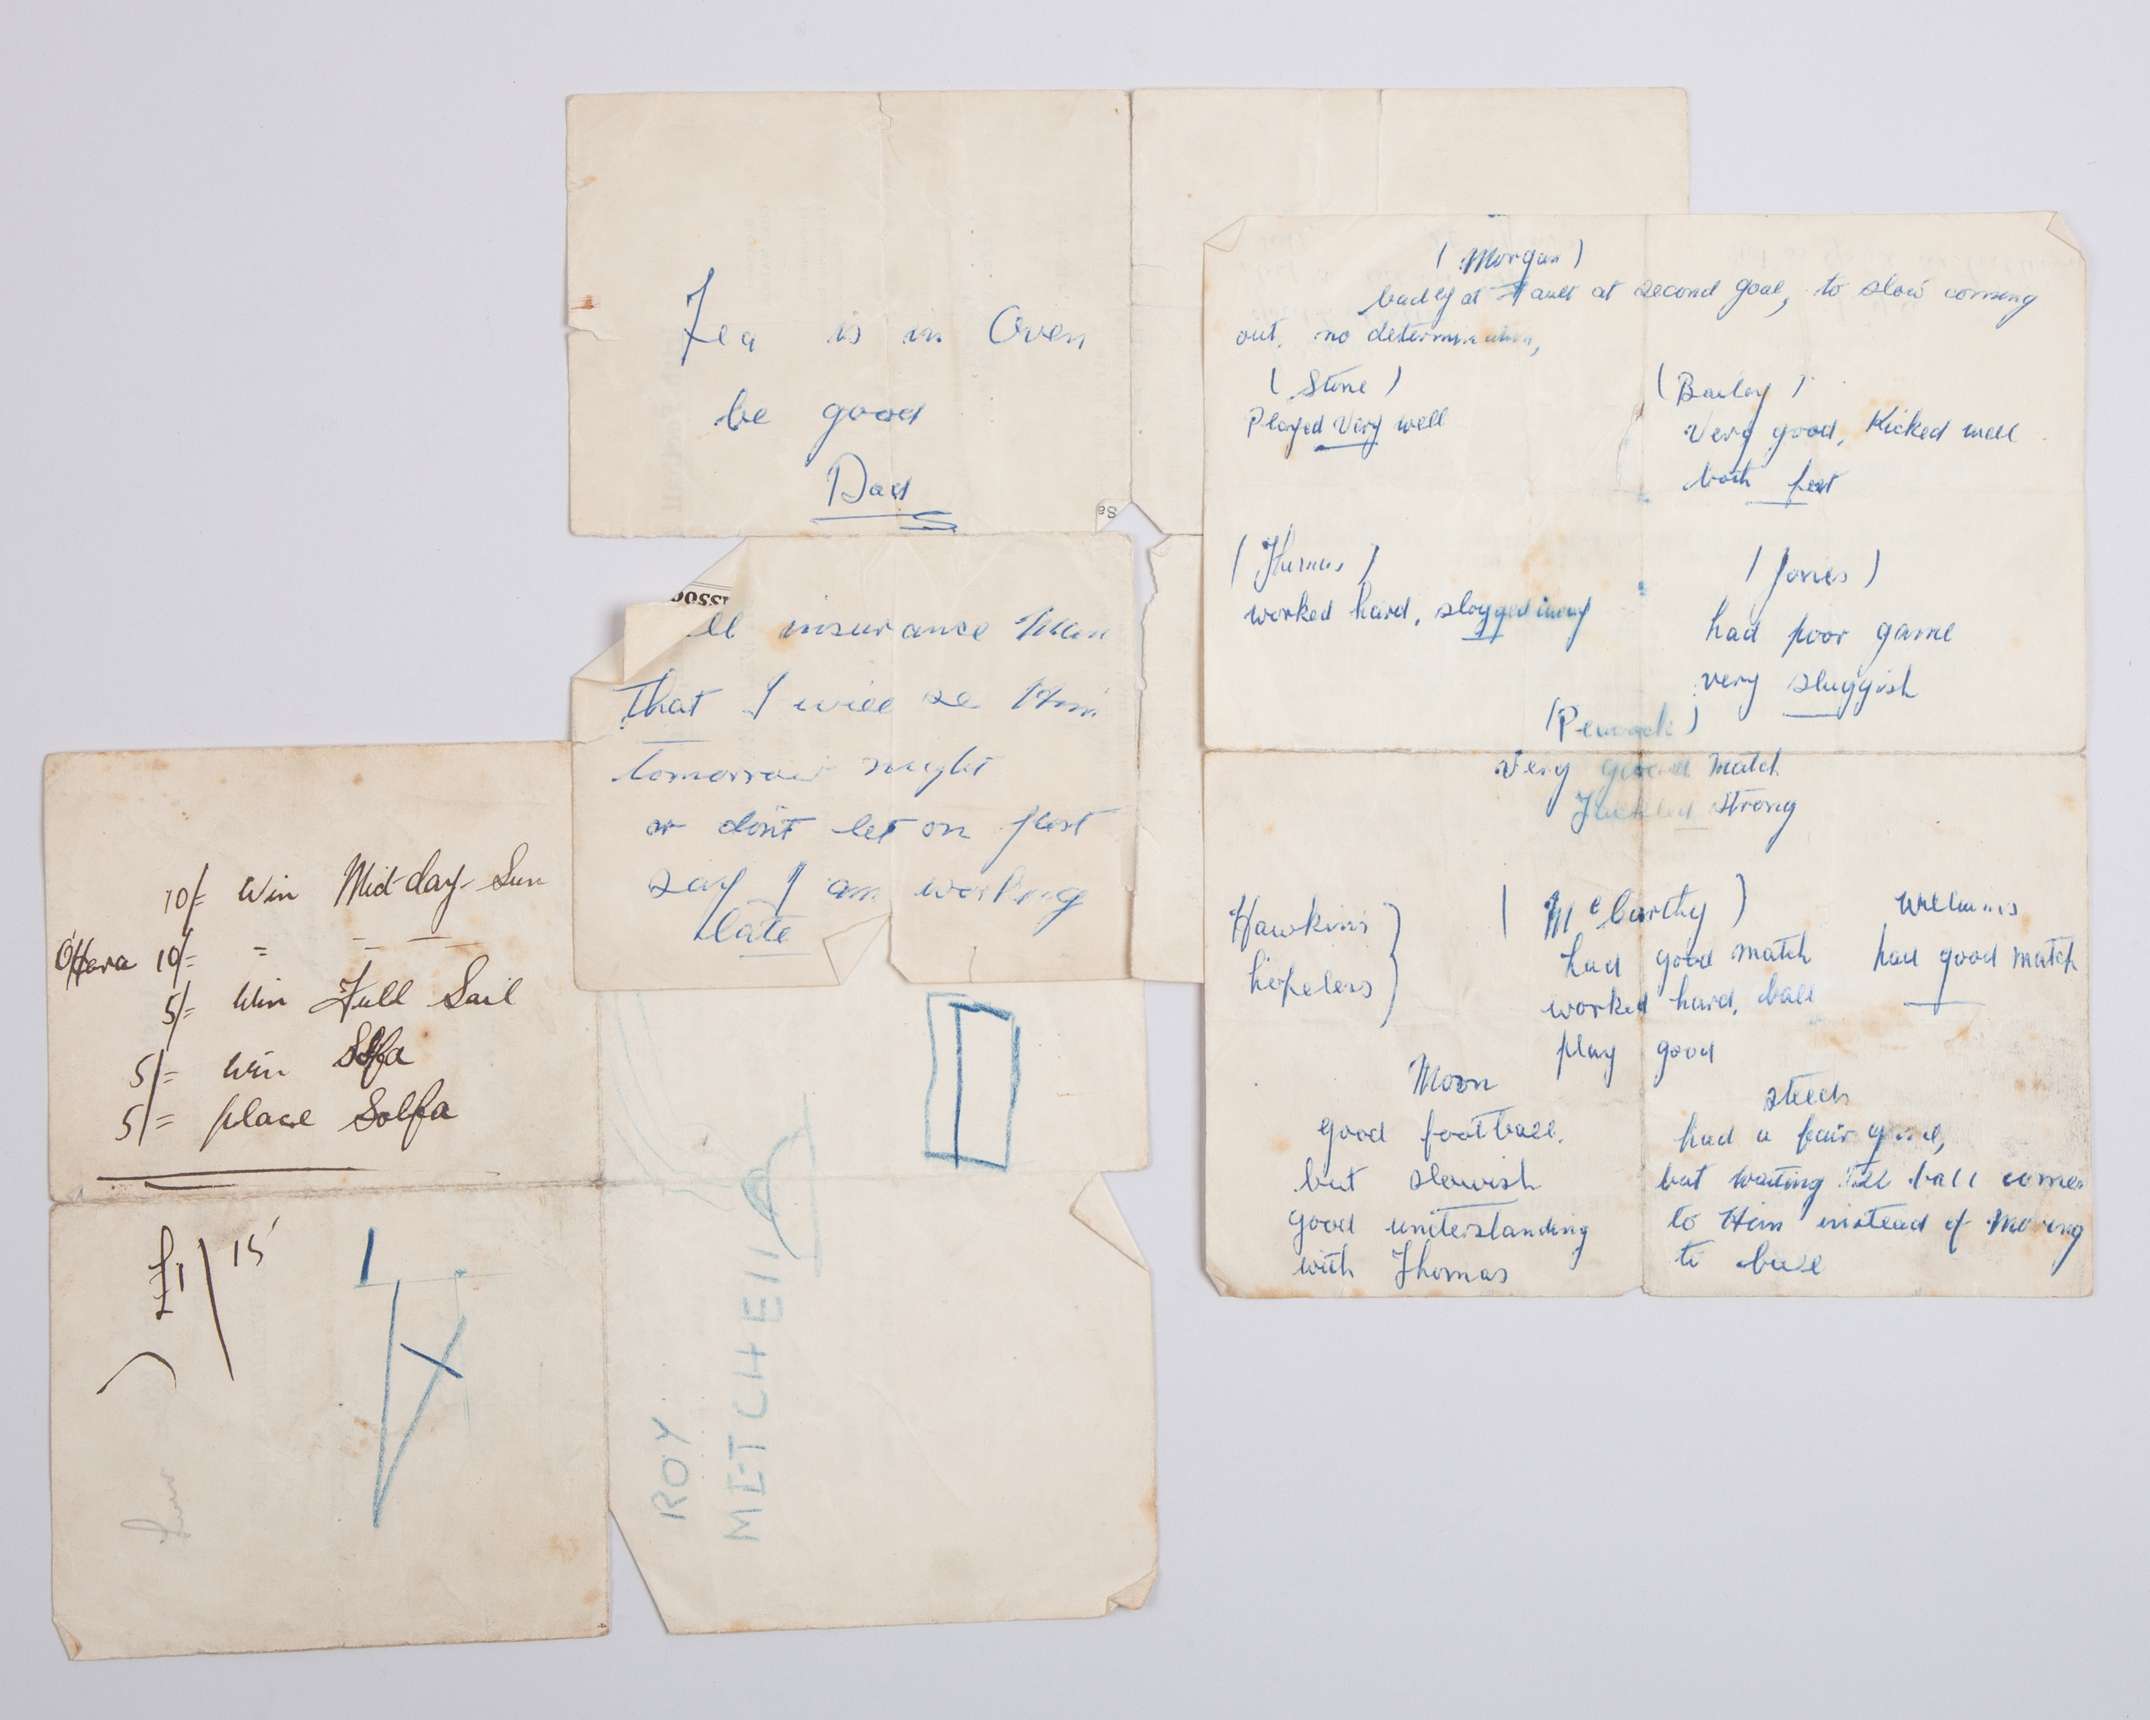 Tea is in Oven
be good
Dad
Se
ssoc
ll insurance Man
That I will se Him
tomorrow night
or don't let on just
say I am working
late
10/= Win Mid-day-Sun
O'Hara 10/= = — — —
5/= Win Full Sail
5/= Win Solfa
5/= place Solfa
£1/15
ROY
METCHELL
(Morgan)
badly at fault at second goal, to slow coming
out, no determination,
(Stone)
Played Very well
(Bailey)
Very good, Kicked well
both feet
(Thomas)
worked hard, slogged away
(Jones)
had poor game
very sluggish
(Peacock)
Very good match
Tackled strong
Hawkins
hopeless
(McCarthy)
had good match
worked hard, ball
play good
Williams
had good match
Moon
good football.
but slowish
good understanding
with Thomas
Steeds
had a fair game,
but waiting till ball comes
to Him instead of Moving
to